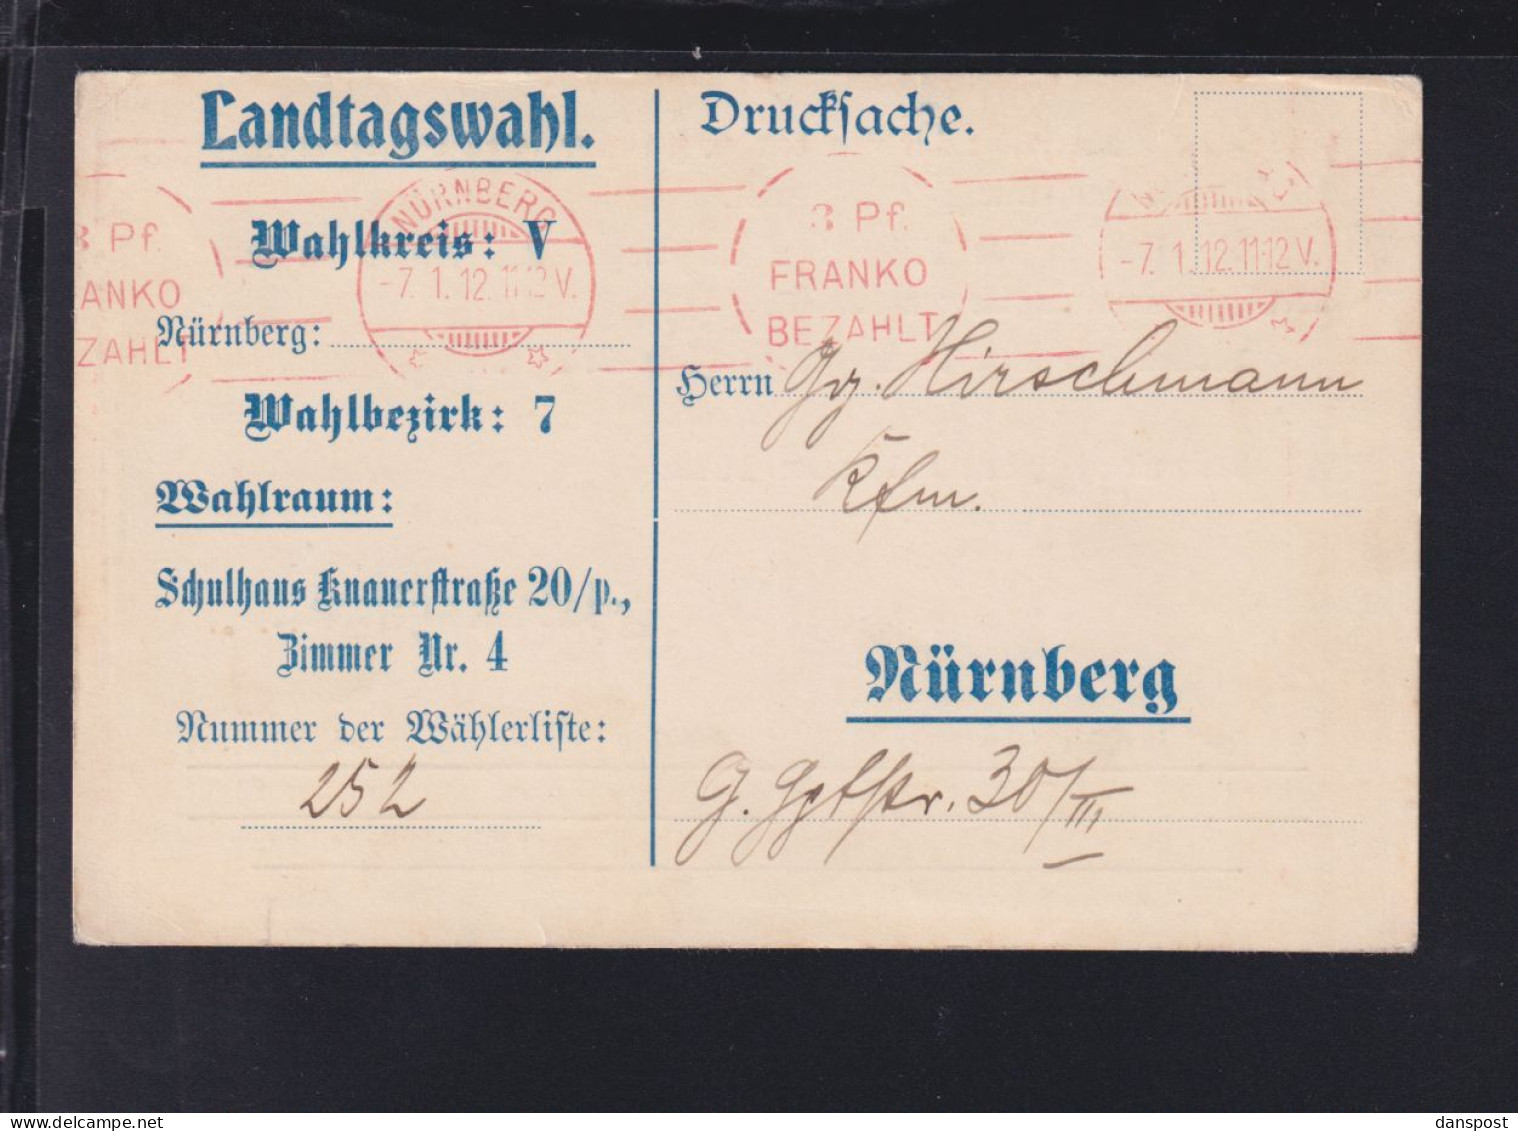 Landtagswahl.
Wahlkreis: V
Nürnberg:
Wahlbezirk: 7
Wahlraum:
Schulhaus Knauerstraße 20/p.,
Zimmer Nr. 4
Nummer der Wählerliste:
252
Drucksache.
3 Pf.
FRANKO
BEZAHLT
NÜRNBERG
-7.1.12.11-12V.
3 Pf.
FRANKO
BEZAHLT
-7.1.12.11-12V.
Herrn Gg. Hirschmann
Kfm.
Nürnberg
30/III
danspost